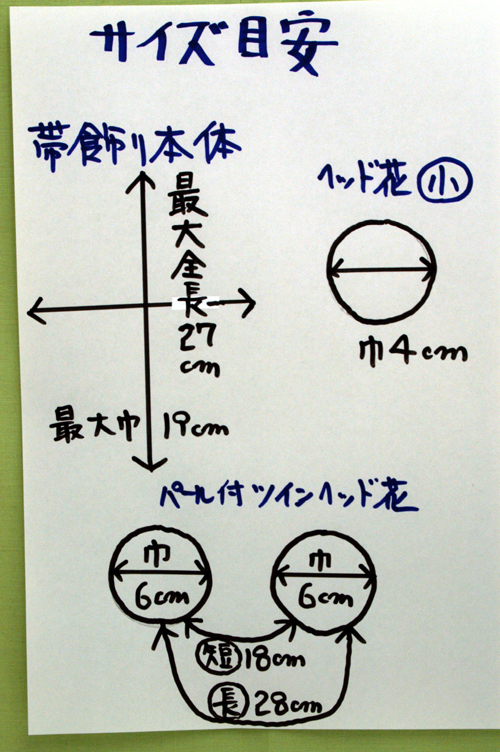 サイズ目安
帯飾り本体
最大全長
27
cm
最大巾 19cm
ヘッド花 小
巾4cm
パール付ツインヘッド花
巾
6cm
巾
6cm
短 18cm
長 28cm